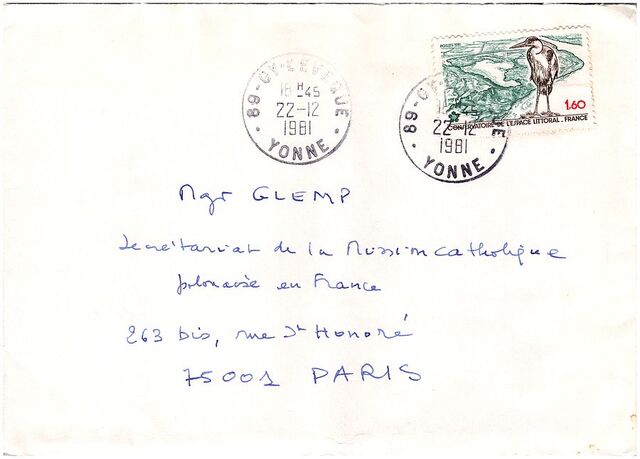 POSTES 1981
1,60
CONSERVATOIRE DE L'ESPACE LITTORAL. FRANCE
89-GY-L'EVEQUE
18H45
22-12
1981
YONNE
89-GY-L'EVEQUE
18H45
22-12
1981
YONNE
Mgr GLEMP
Secrétariat de la Mission Catholique
polonaise en France
263 bis, rue St Honoré
75001 PARIS